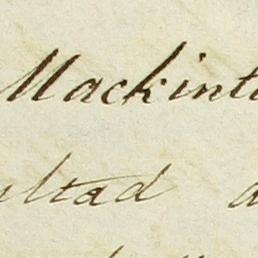 Mackint
ultad a